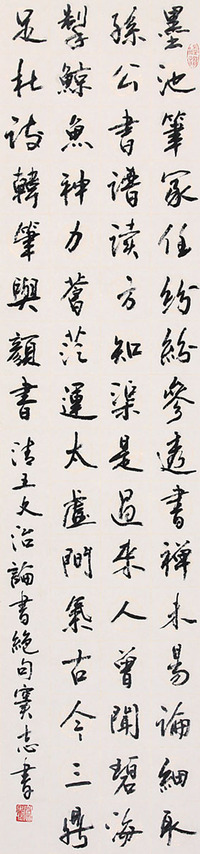 墨池筆冢任紛紛參透書禪未易論細取
孫公書譜读方知渠是過來人曾聞碧海
掣鯨魚神力蒼茫運太虛間氣古今三鼎
足杜詩韓筆與顏書清王文治論書絕句寶志書